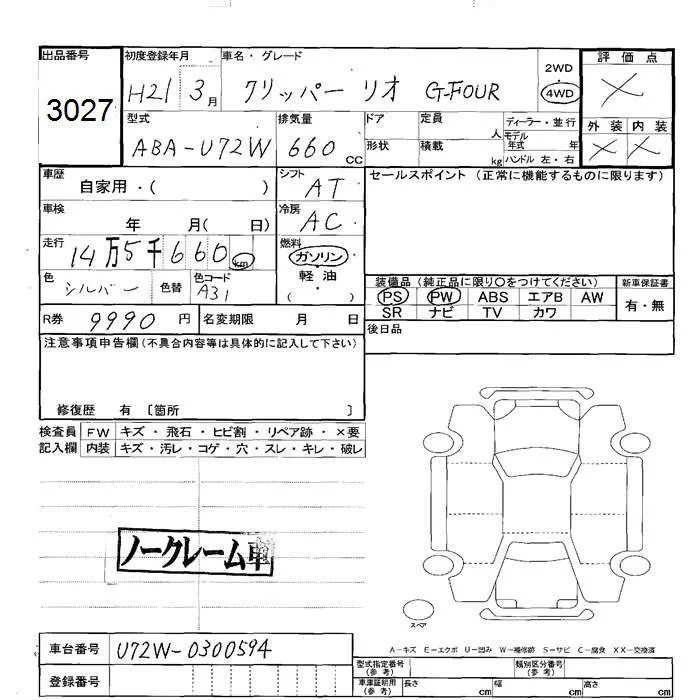 出品番号
3027
初度登録年月
H21 3月
車名・グレード
クリッパー リオ G-FOUR
2WD
4WD
評価点
×
外装 内装
× ×
型式
ABA-U72W
排気量
660 CC
ドア
形状
定員 人
積載 kg
ディーラー・並行
モデル年式 年
ハンドル 左・右
車歴
自家用・( )
シフト
AT
車検
年 月( 日)
冷房
AC
走行
14万5千660km
燃料
ガソリン
軽油
( )
色
シルバー
色替
色コード
A31
R券 9990円
名変期限 月 日
セールスポイント(正常に機能するものに限ります)
装備品(純正品に限り○をつけてください)
PS PW ABS エアB AW
SR ナビ TV カワ
新車保証書
有・無
後日品
注意事項申告欄(不具合内容等は具体的に記入して下さい)
修復歴 有 〔箇所 〕
検査員記入欄
FW キズ・飛石・ヒビ割・リペア跡・×要
内装 キズ・汚レ・コゲ・穴・スレ・キレ・破レ
ノークレーム車
スペア
A－キズ E－エクボ U－凹み W－補修跡 S－サビ C－腐食 XX－交換済
車台番号 U72W-0300594
登録番号
型式指定番号(参考)
類別区分番号(参考)
車庫証明用(参考) 長さ cm 幅 cm 高さ cm